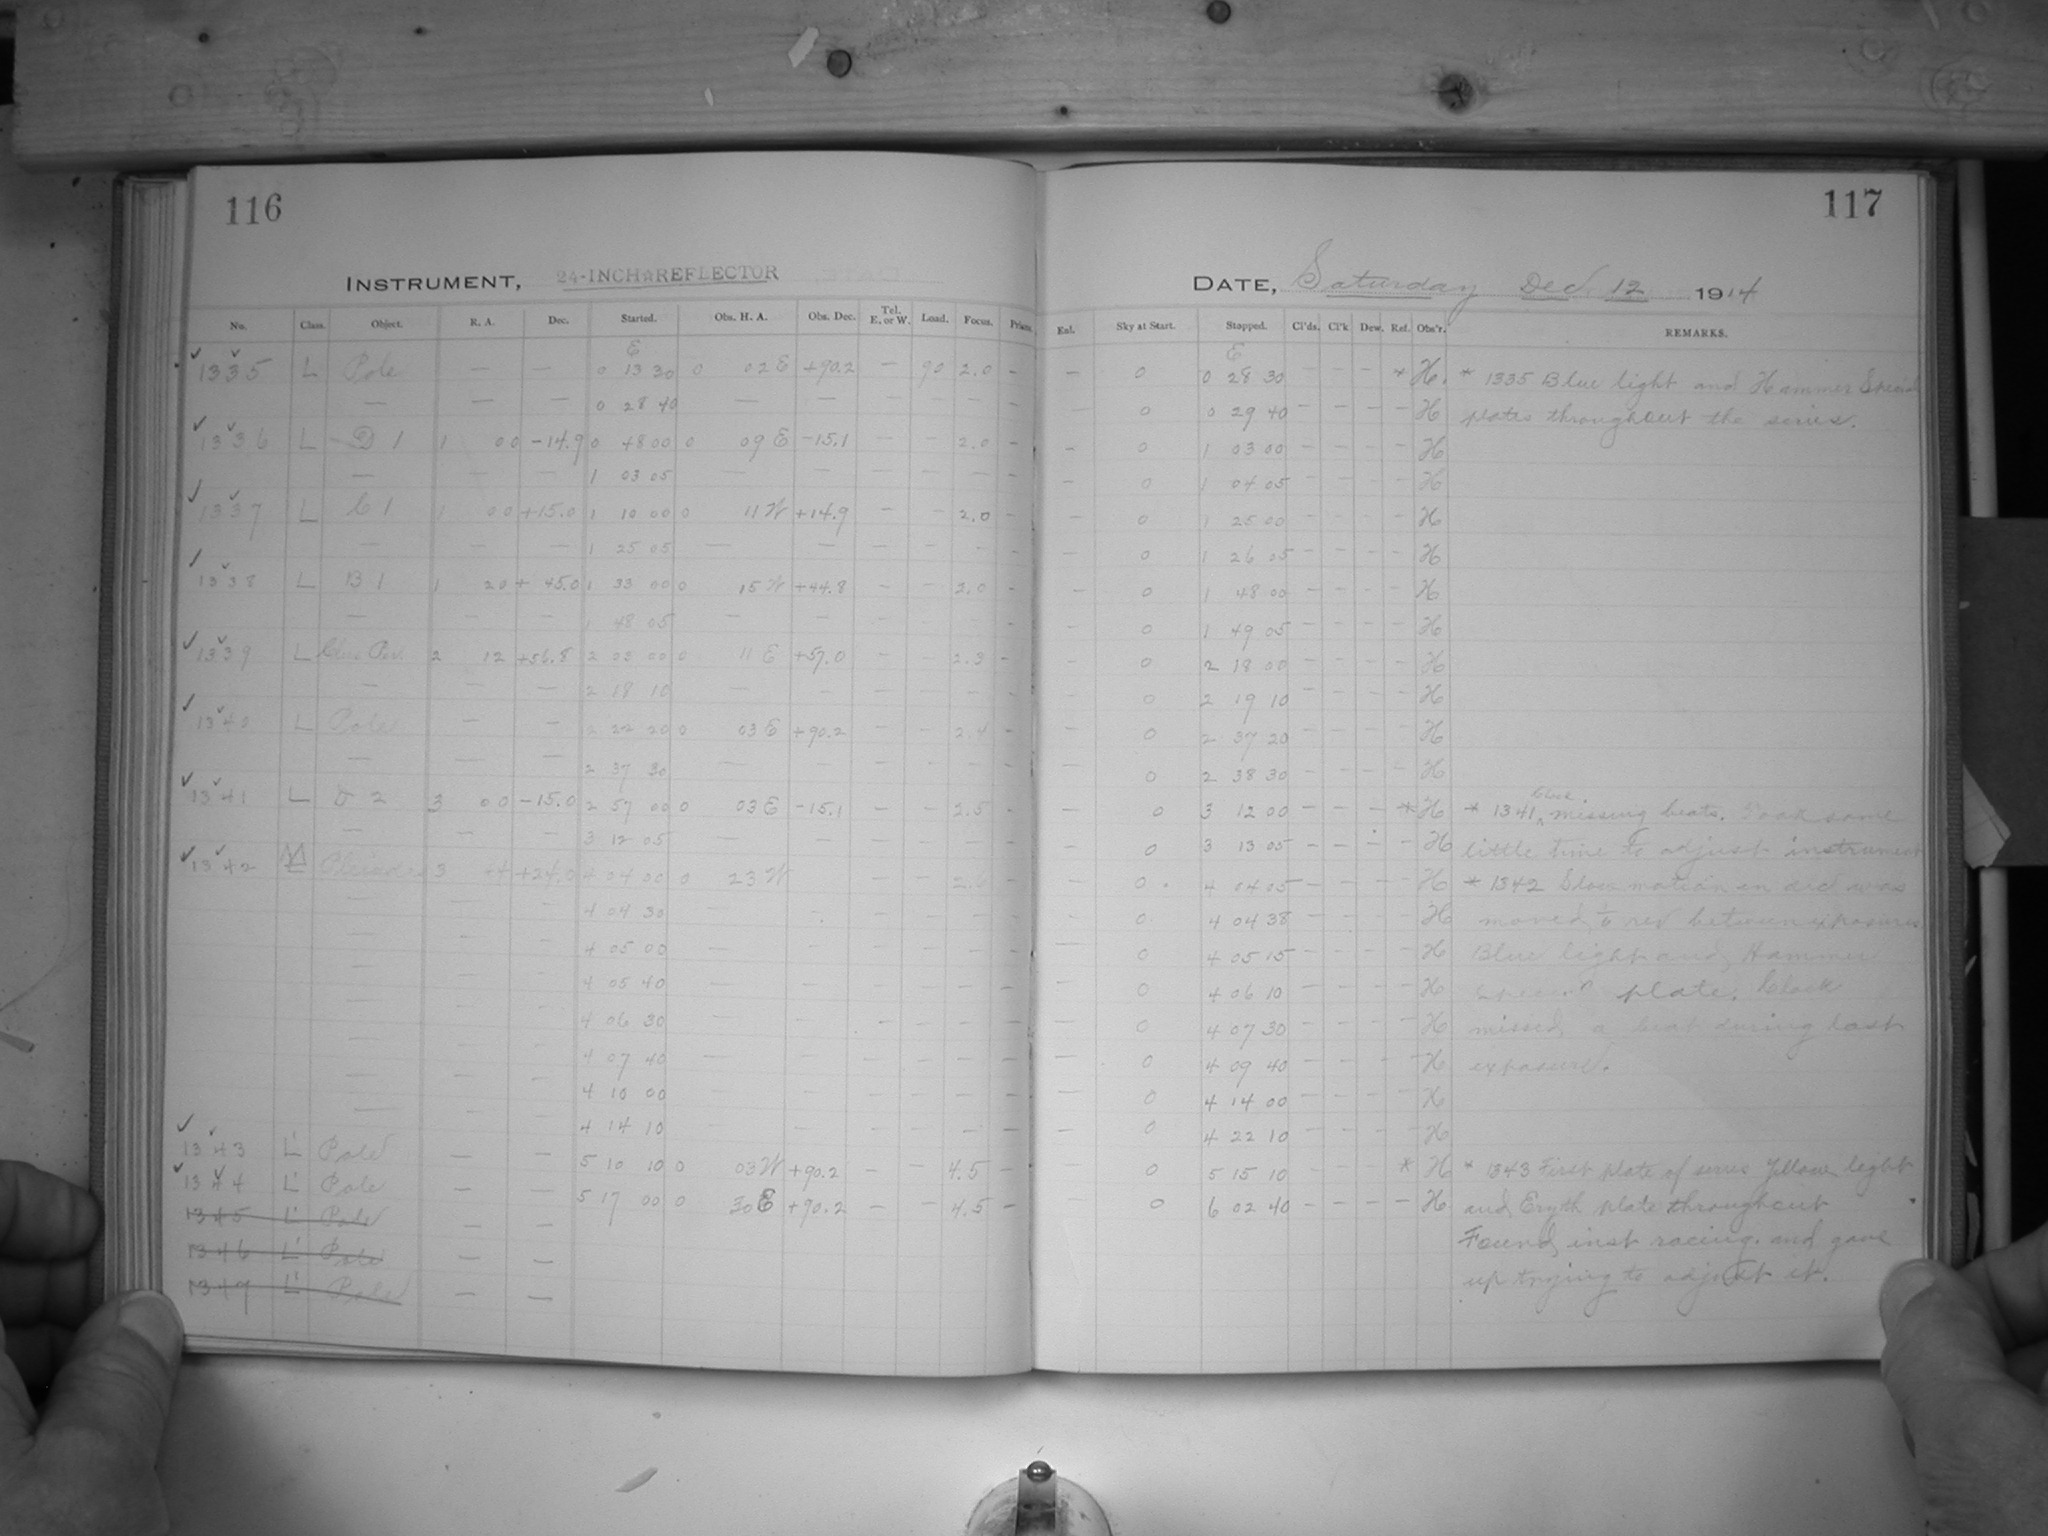 116
INSTRUMENT, 24-INCH☆REFLECTOR
No. Class. Object. R. A. Dec. Started. Obs. H. A. Obs. Dec. Tel. E. or W. Load. Focus. Prism.
E
1335 L Pole — — 0 13 30 0 02 E +90.2 — 90 2.0 —
— — — 0 28 40 — — — — — —
1336 L D 1 1 00 -14.9 0 48 00 0 09 E -15.1 — — 2.0 —
— — — 1 03 05 — — — — — —
1337 L C 1 1 00 +15.0 1 10 00 0 11 W +14.9 — — 2.0 —
— — — 1 25 05 — — — — — —
1338 L B 1 1 20 + 45.0 1 33 00 0 15 W +44.8 — — 2.0 —
— 1 48 05 — — — — — —
1339 L Clus Per. 2 12 +56.8 2 03 00 0 11 E +57.0 — — 2.3 —
— — — 2 18 10 — — — — — —
1340 L Pole — — 2 22 20 0 03 E +90.2 — — 2.4 —
— — — 2 37 30 — — — — — —
1341 L D 2 3 00 -15.0 2 57 00 0 03 E -15.1 — — 2.5 —
— — — 3 12 05 — — — — — —
1342 Pleiades 3 44 +24.0 4 04 00 0 23 W — — —
— — — 4 04 30 — — — — —
— — — 4 05 00 — — — — — —
— — — 4 05 40 — — — — — —
— — — 4 06 30 — — — — —
— — — 4 07 40 — — — — — —
— — — 4 10 00 — — — — — —
— — — 4 14 10 — — — — — —
1343 L' Pole — — 5 10 10 0 03 W +90.2 — — 4.5 —
1344 L' Pole — — 5 17 00 0 30 E +90.2 — — 4.5 —
1345 L' Pole — —
1346 L' Pole — —
1347 L' Pole — —
117
DATE, Saturday Dec. 12 1914
Eml. Sky at Start. Stopped. Cl'ds. Cl'k Dew. Ref. Obs'r. REMARKS.
E
— 0 0 28 30 — — — * H. * 1335 Blue light and Hammer Special
0 0 29 40 — — — — H plates throughout the series.
— 0 1 03 00 — — — — H
— 0 1 04 05 — — — — H
— 0 1 25 00 — — — — H
0 1 26 05 — — — — H
— 0 1 48 00 — — — — H
0 1 49 05 — — — — H
0 2 18 00 — — — — H
0 2 19 10 — — — — H
0 2 37 20 — — — — H
0 2 38 30 — — — — H
0 3 12 00 — — — * H * 1341 clock missing beats. Took some
0 3 13 05 — — — — H little time to adjust instrument
0 4 04 05 — — — — H * 1342 Slow motion in dec was
0 4 04 38 — — — — H moved ½ rev between exposures
— 0 4 05 15 — — — — H Blue light and Hammer
— 0 4 06 10 — — — — H special plate. Clock
— 0 4 07 30 — — — — H missed a beat during last
— 0 4 09 40 — — — — H exposure.
— 0 4 14 00 — — — — H
— 0 4 22 10 — — — — H
— 0 5 15 10 — — — * H * 1343 First plate of series Yellow light
— 0 6 02 40 — — — — H and Eryth plate throughout
Found inst racing. and gave
up trying to adjust it.